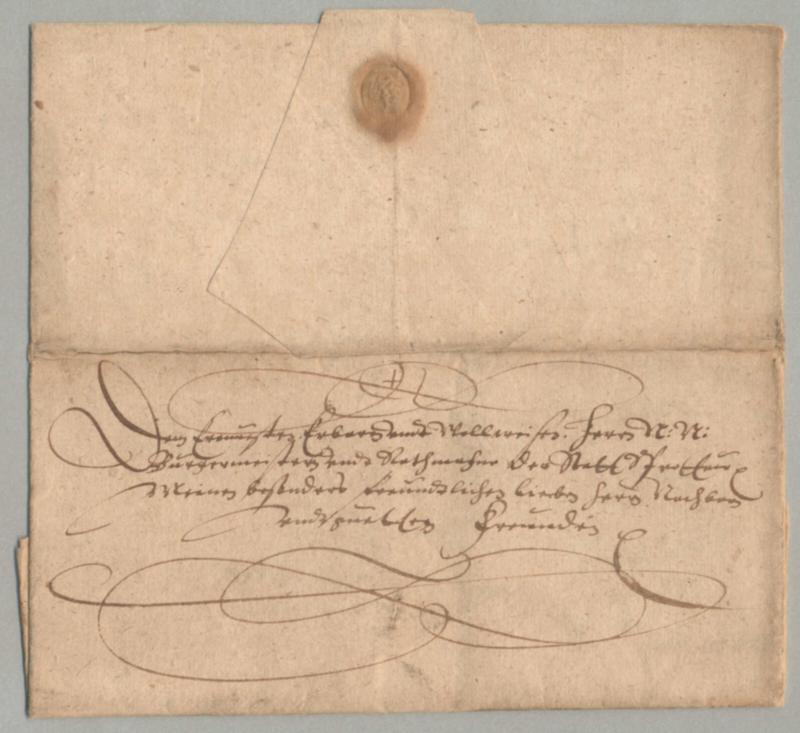 Den Ernuesten Erbarn vnnd Wollweisen. Herrn N: N:
Bürgermeistern vnnd Rathmanne der Stadt
Meinen besonders freündtlichen lieben Herrn Nachbarn
vnnd Freunden